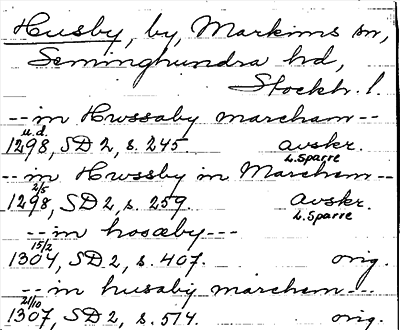 Husby, by, Markims sn,
Seminghundra hd,
Stockh. l.
-- in Hussaby marcham --
u.d.
1298, SD 2, s. 245. avskr.
L. Sparre
-- in Hwssby in Marchem --
2/5
1298, SD 2, s. 259. avskr.
L. Sparre
-- in hosæby ---
15/2
1304, SD 2, s. 407. orig.
-- in husaby marchem ---
21/10
1307, SD 2, s. 514. orig.